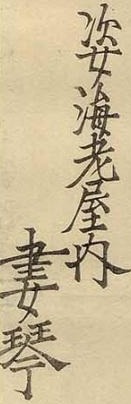 姿海老屋内
妻琴